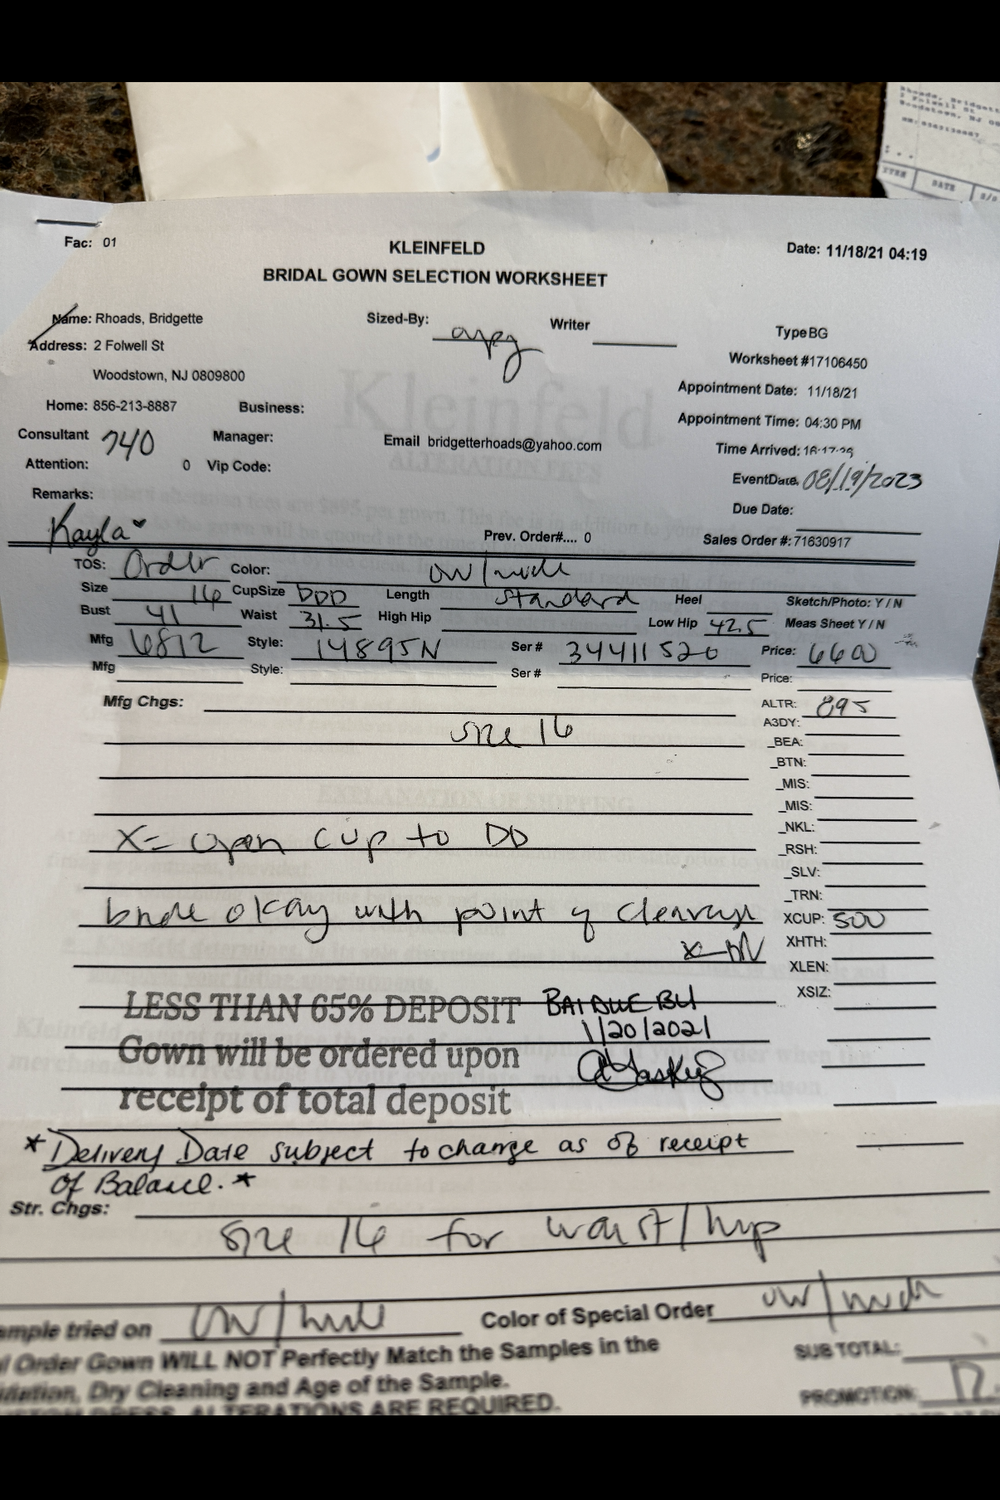 Fac: 01
KLEINFELD
Date: 11/18/21 04:19
BRIDAL GOWN SELECTION WORKSHEET
Name: Rhoads, Bridgette
Sized-By:
Writer
Type BG
Address: 2 Folwell St
Worksheet #17106450
Woodstown, NJ 0809800
Appointment Date: 11/18/21
Home: 856-213-8887 Business:
Appointment Time: 04:30 PM
Consultant 740 Manager:
Email bridgetterhoads@yahoo.com
Time Arrived:
Attention: 0 Vip Code:
EventDate. 08/19/2023
Remarks:
Due Date:
Kayla
Prev. Order#.... 0
Sales Order #: 71630917
Kleinfeld
ALTERATION FEES
TOS: Order Color: OW/nude
Size 16 CupSize DDD Length Standard Heel Sketch/Photo: Y / N
Bust 41 Waist 31.5 High Hip Low Hip 42.5 Meas Sheet Y / N
Mfg 6812 Style: 14895N Ser # 34411520 Price: 6600
Mfg Style: Ser # Price:
Mfg Chgs:
ALTR: 895
size 16
A3DY:
_BEA:
_BTN:
_MIS:
_MIS:
EXPLANATION OF SHIPPING
_NKL:
X= open cup to DD
_RSH:
_SLV:
_TRN:
bride okay with point of cleavage
XCUP: 500
XHTH:
XLEN:
XSIZ:
LESS THAN 65% DEPOSIT BAL DUE BY
1/20/2021
Gown will be ordered upon
receipt of total deposit
* Delivery Date subject to change as of receipt
of Balance. *
Str. Chgs:
size 16 for waist/hip
ample tried on OW/nude Color of Special Order OW/nude
Order Gown WILL NOT Perfectly Match the Samples in the
SUB TOTAL:
Dry Cleaning and Age of the Sample.
PROMOTION:
ALTERATIONS ARE REQUIRED.